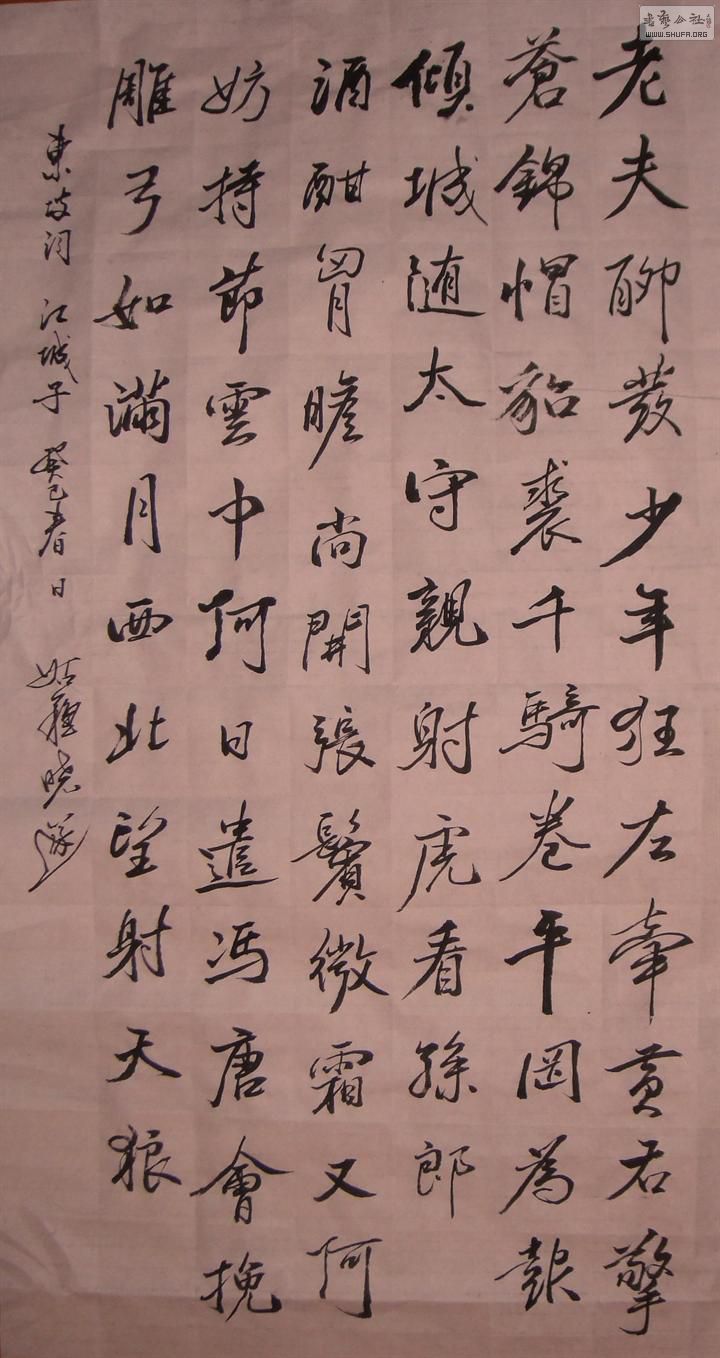 老夫聊發少年狂左牽黄右擎
蒼錦帽貂裘千騎卷平岡為報
傾城随太守親射虎看孫郎
酒酣胷膽尚開張鬢微霜又何
妨持節雲中何日遣馮唐會挽
雕弓如滿月西北望射天狼
東坡词 江城子 癸巳春日 姑蘇曉
書藝公社
WWW.SHUFA.ORG